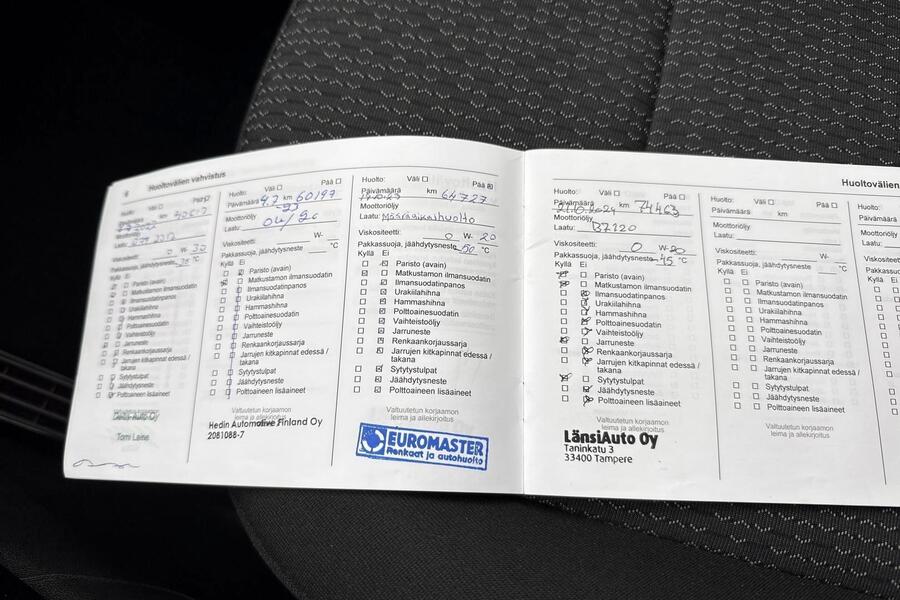 6 Huoltovälien vahvistus
Huolto: Väli Pää
Päivämäärä km
Moottoriöljy
Laatu:
Viskositeetti: 0 W- 30
Pakkassuoja, jäähdytysneste °C
Kyllä Ei
Paristo (avain)
Matkustamon ilmansuodatin
Ilmansuodatinpanos
Urakiilahihna
Hammashihna
Polttoainesuodatin
Vaihteistoöljy
Jarruneste
Renkaankorjaussarja
Jarrujen kitkapinnat edessä /
takana
Sytytystulpat
Jäähdytysneste
Polttoaineen lisäaineet
Delta-Auto Oy
Tomi Laine
Huolto: Väli Pää
Päivämäärä 4.7 km 60197
-23
Moottoriöljy
Laatu:
Viskositeetti: W-
Pakkassuoja, jäähdytysneste °C
Kyllä Ei
Paristo (avain)
Matkustamon ilmansuodatin
Ilmansuodatinpanos
Urakiilahihna
Hammashihna
Polttoainesuodatin
Vaihteistoöljy
Jarruneste
Renkaankorjaussarja
Jarrujen kitkapinnat edessä /
takana
Sytytystulpat
Jäähdytysneste
Polttoaineen lisäaineet
Valtuutetun korjaamon
leima ja allekirjoitus
Hedin Automotive Finland Oy
2081088-7
Huolto: Väli Pää
Päivämäärä km 64727
Moottoriöljy
Laatu: Määräaikaishuolto
Viskositeetti: 0 W- 20
Pakkassuoja, jäähdytysneste -50 °C
Kyllä Ei
Paristo (avain)
Matkustamon ilmansuodatin
Ilmansuodatinpanos
Urakiilahihna
Hammashihna
Polttoainesuodatin
Vaihteistoöljy
Jarruneste
Renkaankorjaussarja
Jarrujen kitkapinnat edessä /
takana
Sytytystulpat
Jäähdytysneste
Polttoaineen lisäaineet
Valtuutetun korjaamon
leima ja allekirjoitus
EUROMASTER
Renkaat ja autohuolto
Huoltovälien
Huolto: Väli Pää
Päivämäärä km 74463
21.10.2024
Moottoriöljy
Laatu: B7120
Viskositeetti: 0 W-20
Pakkassuoja, jäähdytysneste -45 °C
Kyllä Ei
Paristo (avain)
Matkustamon ilmansuodatin
Ilmansuodatinpanos
Urakiilahihna
Hammashihna
Polttoainesuodatin
Vaihteistoöljy
Jarruneste
Renkaankorjaussarja
Jarrujen kitkapinnat edessä /
takana
Sytytystulpat
Jäähdytysneste
Polttoaineen lisäaineet
Valtuutetun korjaamon
leima ja allekirjoitus
LänsiAuto Oy
Taninkatu 3
33400 Tampere
Huolto: Väli Pää
Päivämäärä km
Moottoriöljy
Laatu:
Viskositeetti: W-
Pakkassuoja, jäähdytysneste °C
Kyllä Ei
Paristo (avain)
Matkustamon ilmansuodatin
Ilmansuodatinpanos
Urakiilahihna
Hammashihna
Polttoainesuodatin
Vaihteistoöljy
Jarruneste
Renkaankorjaussarja
Jarrujen kitkapinnat edessä /
takana
Sytytystulpat
Jäähdytysneste
Polttoaineen lisäaineet
Valtuutetun korjaamon
leima ja allekirjoitus
Huolto:
Päivämäärä
Moottoriöljy
Laatu:
Viskositeetti:
Pakkassuoja,
Kyllä Ei